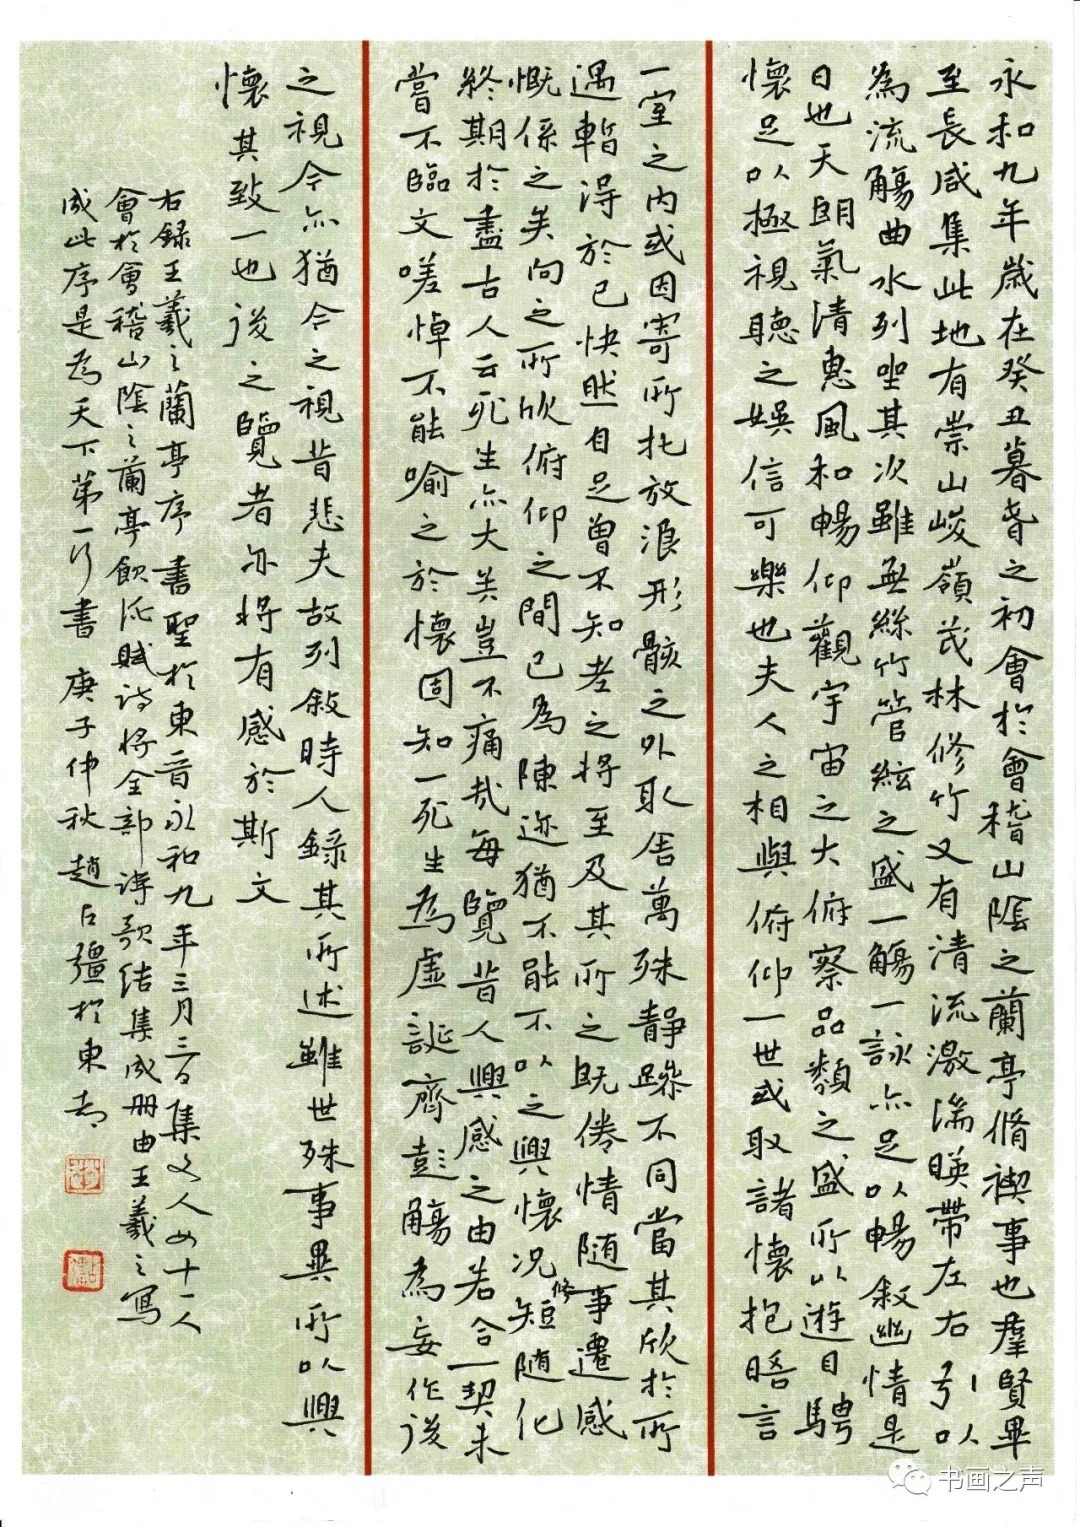 永和九年歲在癸丑暮春之初會於會稽山陰之蘭亭脩禊事也羣賢畢
至長咸集此地有崇山峻嶺茂林修竹又有清流激湍暎帶左右引以
為流觴曲水列坐其次雖無絲竹管絃之盛一觴一詠亦足以暢敘幽情是
日也天朗氣清惠風和暢仰觀宇宙之大俯察品類之盛所以遊目騁
懷足以極視聽之娛信可樂也夫人之相與俯仰一世或取諸懷抱晤言
一室之內或因寄所托放浪形骸之外取舍萬殊靜躁不同當其欣於所
遇暫得於己快然自足曾不知老之將至及其所之既倦情隨事遷感
慨係之矣向之所欣俯仰之間已為陳迹猶不能不以之興懷况修短隨化
終期於盡古人云死生亦大矣豈不痛哉每覽昔人興感之由若合一契未
嘗不臨文嗟悼不能喻之於懷固知一死生為虛誕齊彭觴為妄作後
之視今亦猶今之視昔悲夫故列敘時人錄其所述雖世殊事異所以興
懷其致一也後之覽者亦將有感於斯文
右録王羲之蘭亭序書聖於東晉永和九年三月三日集文人四十一人
會於會稽山陰之蘭亭飲酒賦詩將全部詩歌結集成册由王羲之寫
成此序是為天下第一行書庚子仲秋趙占疆於東都
书画之声